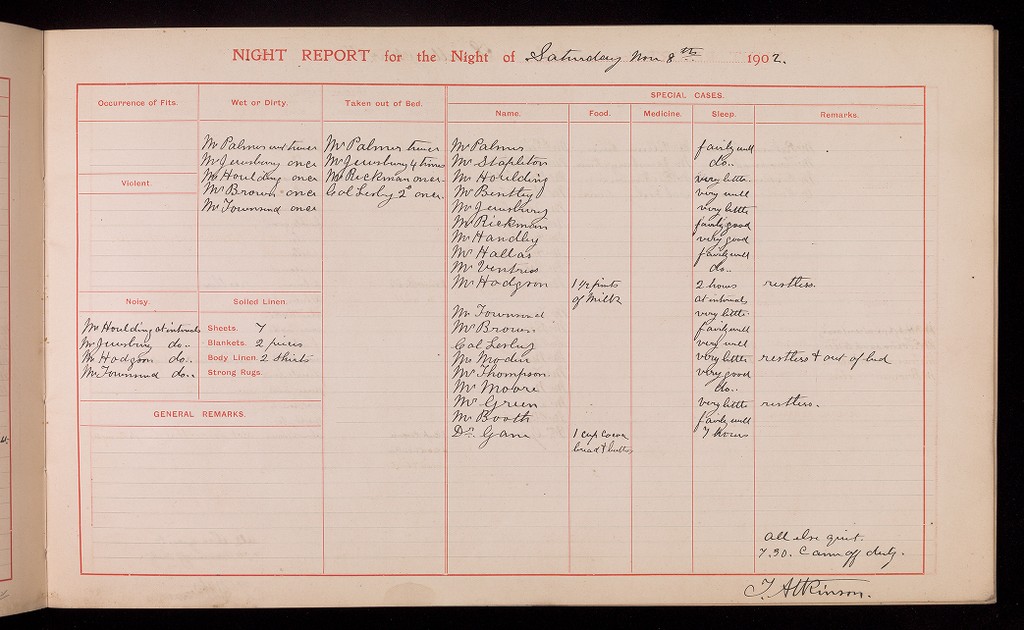 NIGHT REPORT for the Night of Saturday Nov 8th 1902.
Occurrence of Fits.
Wet or Dirty.
Mr Palmer wet twice
Mr Jewsbury once
Mr Houlding once
Mr Brown once
Mr Townsend once
Taken out of Bed.
Mr Palmer twice
Mr Jewsbury 4 times
Mr Rickman once
Col Lesley 2° once
Violent.
Noisy.
Mr Houlding at intervals
Mr Jewsbury do..
Mr Hodgson do..
Mr Townsend do..
Soiled Linen.
Sheets. 7
Blankets. 2 pieces
Body Linen. 2 Shirts
Strong Rugs.
GENERAL REMARKS.
SPECIAL CASES.
Name. Food. Medicine. Sleep. Remarks.
Mr Palmer fairly well
Mr Stapleton do..
Mr Houlding very little
Mr Bentley very well
Mr Jewsbury very little
Mr Rickman fairly good
Mr Handley very good
Mr Hallas fairly well
Mr Ventris do..
Mr Hodgson 1 1/2 pints 2 hours restless.
of Milk at intervals
Mr Townsend very little
Mr Brown fairly well
Col Lesley very well
Mr Modin very little restless & out of bed
Mr Thompson very good
Mr Moore do..
Mr Green very little restless.
Mr Booth fairly well
Dr Gane 1 cup cocoa 7 hours
bread & butter
All else quiet.
7.30. C am off duty.
T. Atkinson.